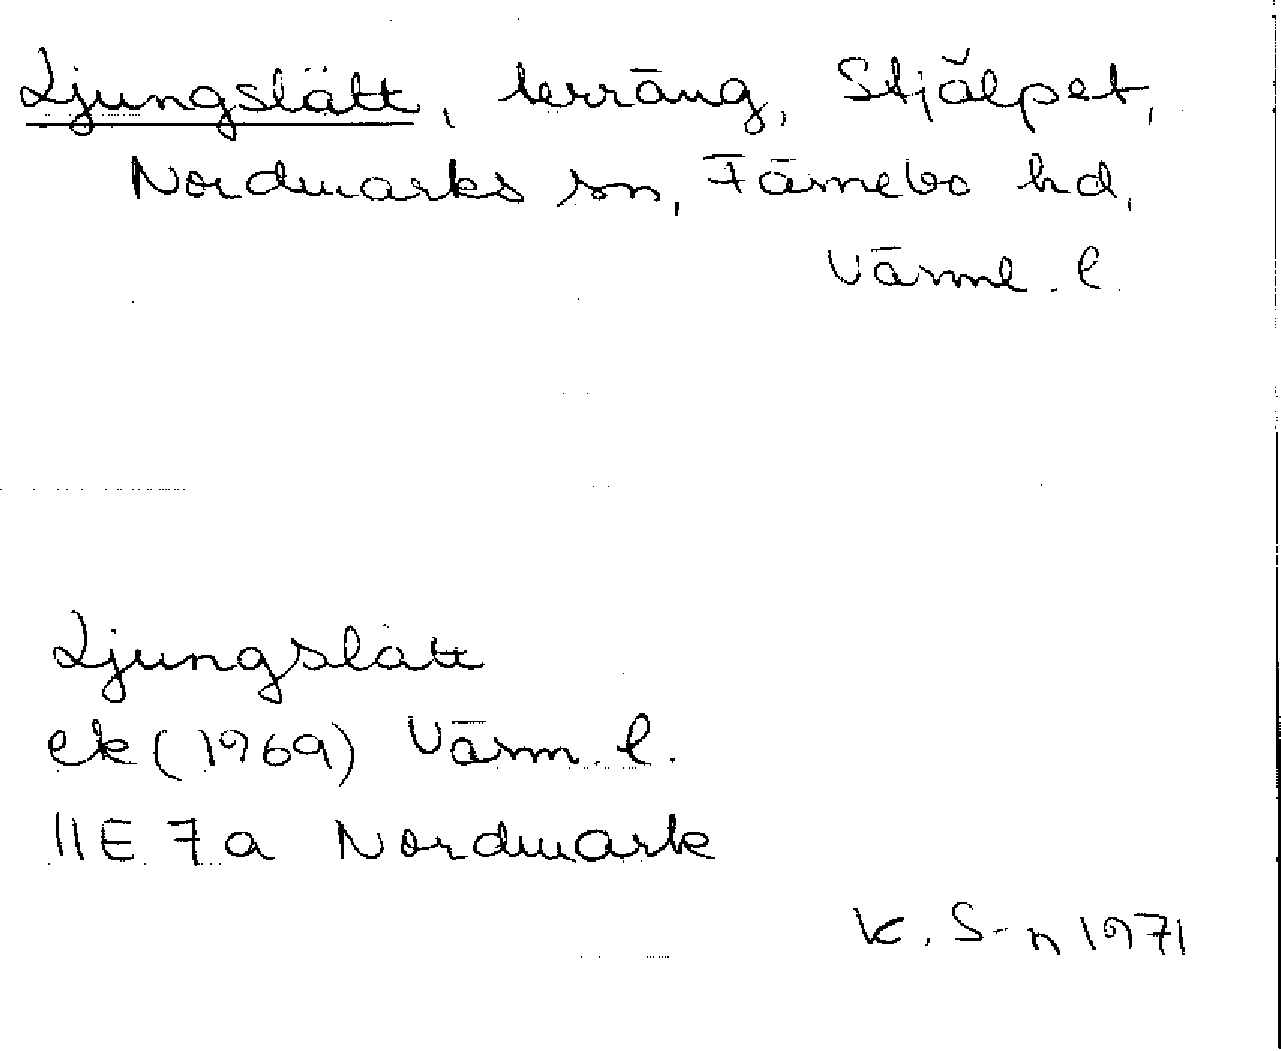 Ljungslätt, terräng, Stjälpet,
Nordmarks sn, Färnebo hd,
Värml. l.
Ljungslätt
ek (1969) Värm. l.
11E 7a Nordmark
K. S-n 1971